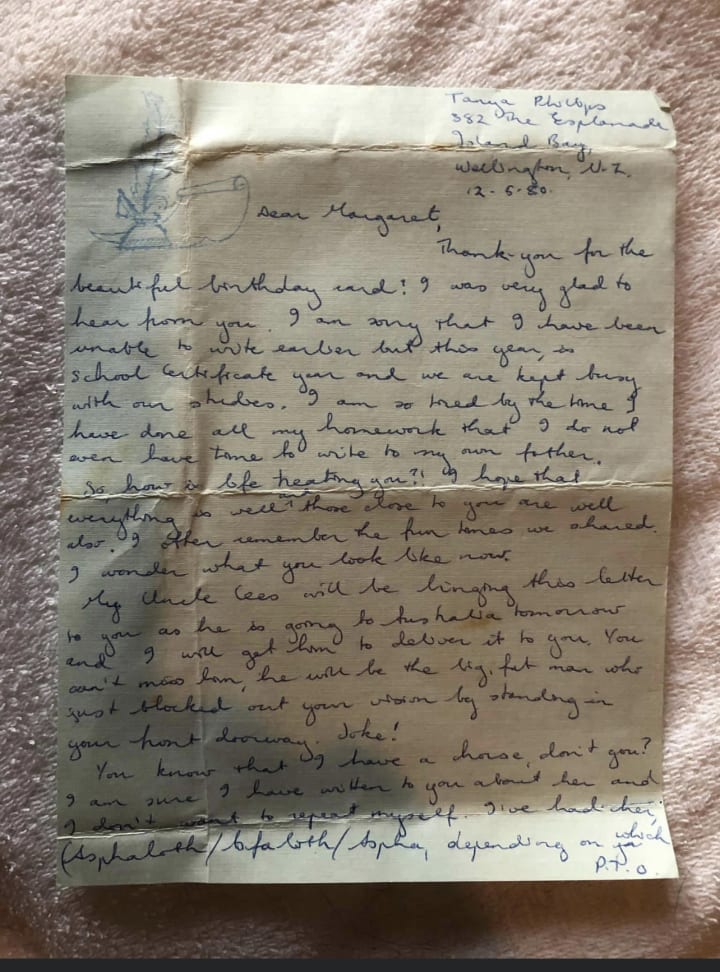 Tanya Phillips
382 The Esplanade
Island Bay,
Wellington, N.Z.
12-6-80.
Dear Margaret,
Thank-you for the
beautiful birthday card! I was very glad to
hear from you. I am sorry that I have been
unable to write earlier but this year, is
School Certificate year and we are kept busy
with our studies. I am so tired by the time I
have done all my homework that I do not
even have time to write to my own father.
So, how is life treating you?! I hope that
everything is well and those close to you are well
also. I often remember the fun times we shared.
I wonder what you look like now.
My Uncle Cees will be bringing this letter
to you as he is going to Australia tomorrow
and I will get him to deliver it to you. You
can't miss him, he will be the big, fat man who
just blocked out your vision by standing in
your front doorway. Joke!
You know that I have a horse, don't you?
I am sure I have written to you about her and
I don't want to repeat myself. I've had her,
(Asphaloth/ /Aspha, depending on which
P.T.O.